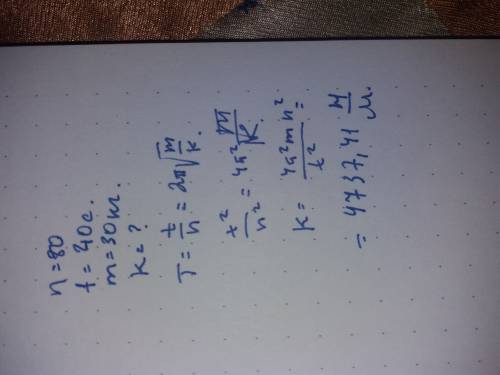 n=80
t=40c.
m=30кг.
k=?
T= t/n = 2π√(m/k).
t²/n² = 4π² m/k
k= 4π²mn²/t² =
= 4737,41 Н/м.